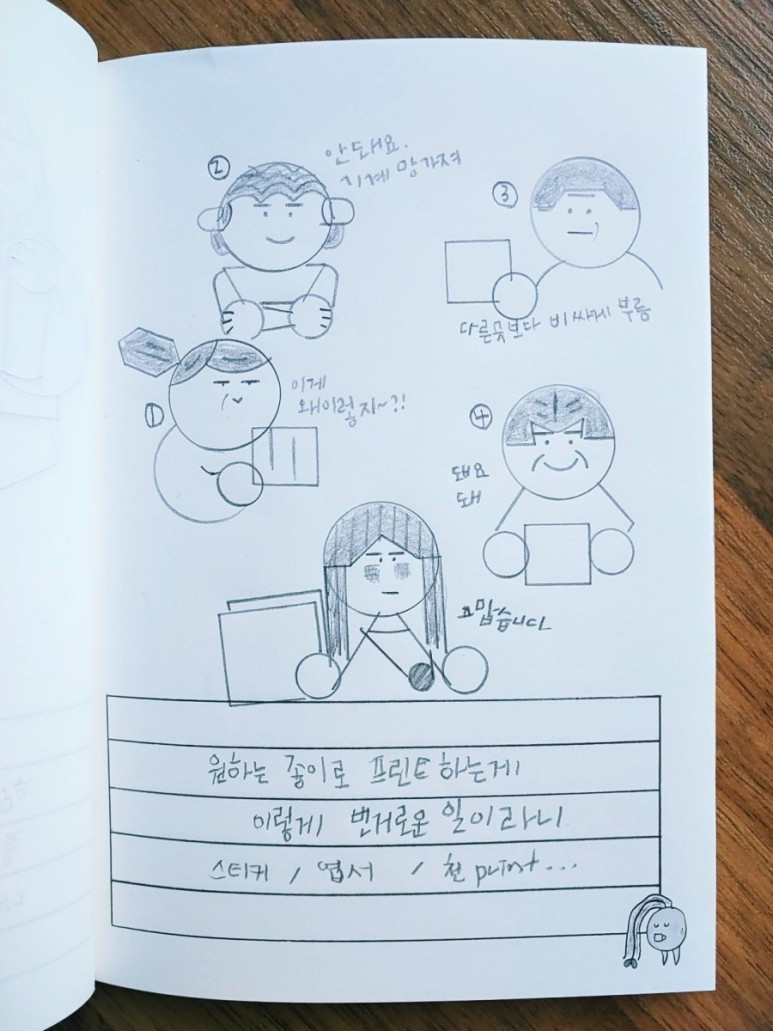 ①
이게
왜이렇지~?!
②
안돼요.
기계 망가져
③
다른곳보다 비싸게 부름
④
돼요
돼
고맙습니다
원하는 종이로 프린트 하는게
이렇게 번거로운 일이라니
스티커 / 엽서 / 천 print...